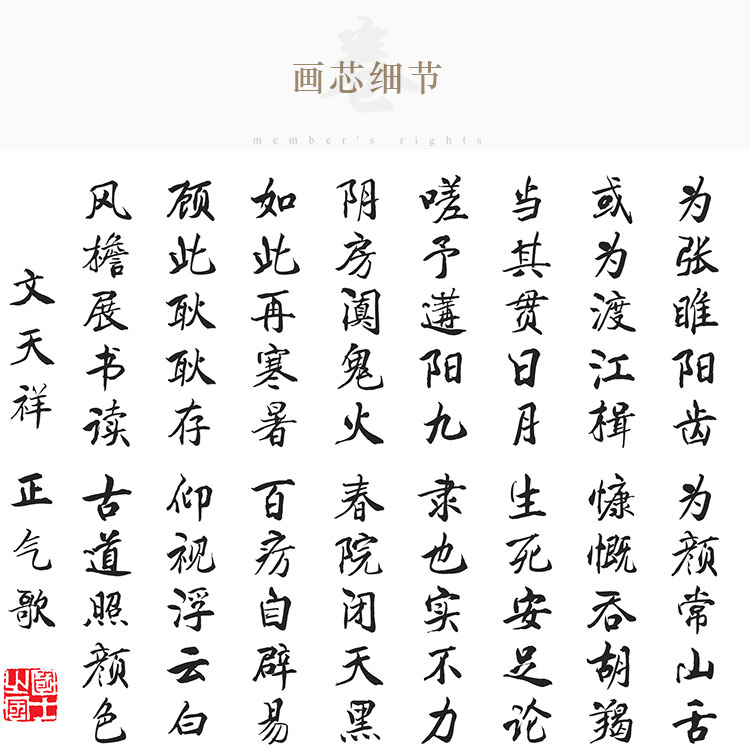 画芯细节
member's rights
为张睢阳齿 为颜常山舌
或为渡江楫 慷慨吞胡羯
当其贯日月 生死安足论
嗟予遘阳九 隶也实不力
阴房阗鬼火 春院闭天黑
如此再寒暑 百疠自辟易
顾此耿耿存 仰视浮云白
风檐展书读 古道照颜色
文天祥 正气歌